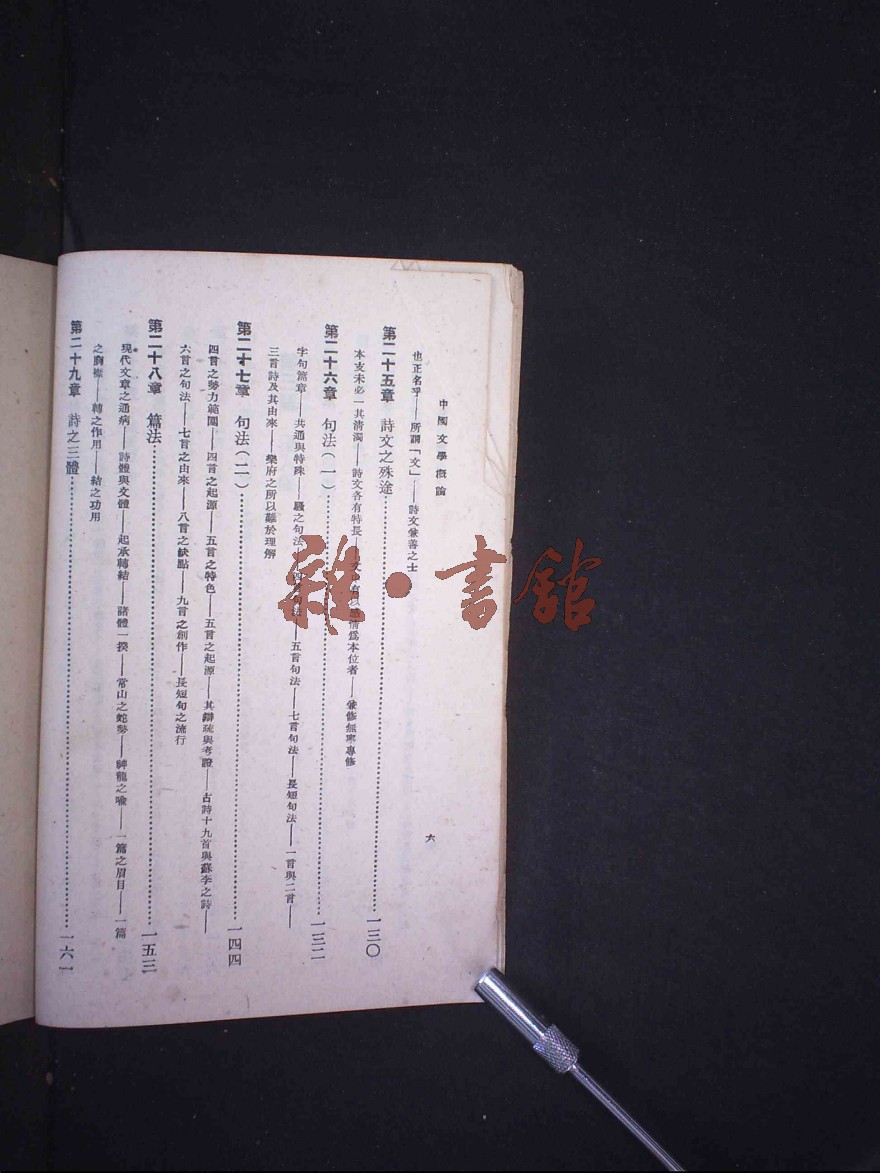 中國文學概論
六
也正名乎——所謂「文」——詩文兼善之士
第二十五章 詩文之殊途……一三〇
本支未必一其清濁——詩文各有特長——文有以情爲本位者——兼修無寧專修
第二十六章 句法(一)……一三二
字句篇章——共通與特殊——騷之句法——句法——五言句法——七言句法——長短句法——一言與二言——
三言詩及其由來——樂府之所以難於理解
第二十七章 句法(二)……一四四
四言之勢力範圍——四言之起源——五言之特色——五言之起源——其辯疏與考證——古詩十九首與蘇李之詩——
六言之句法——七言之由來——八言之缺點——九言之創作——長短句之流行
第二十八章 篇法……一五三
現代文章之通病——詩體與文體——起承轉結——諸體一揆——常山之蛇勢——神龍之喩——一篇之眉目——一篇
之胸襟——轉之作用——結之功用
第二十九章 詩之三體……一六一
雜·書館